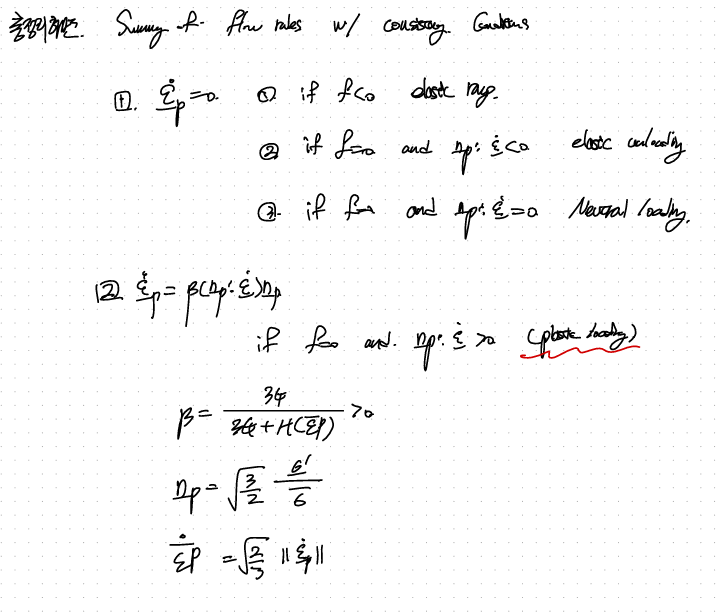 총정리하면. Summary of flow rules w/ consistency Conditions
[1]. ε̇_p=0. ① if f<0 elastic range.
② if f=0 and n_p:ε̇<0 elastic unloading
③. if f=0 and n_p:ε̇=0 Neutral loading.
[2] ε̇_p=β(n_p:ε̇)n_p
if f=0 and. n_p:ε̇>0 (plastic loading)
β = 3G / (3G+H(ε̄p)) >0
n_p = √(3/2) σ'/σ̄
ε̄̇p = √(2/3) ||ε̇_p||